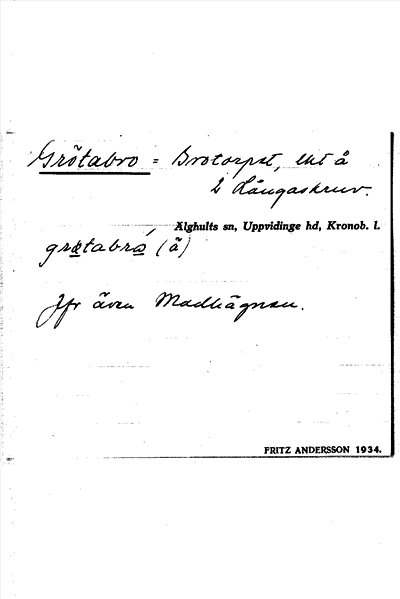 Grötabro = Brotorpet, lht å
½ Långaskruv.
Älghults sn, Uppvidinge hd, Kronob. l.
grøtabrå̀ (å)
Jfr även Madhägnan.
FRITZ ANDERSSON 1934.